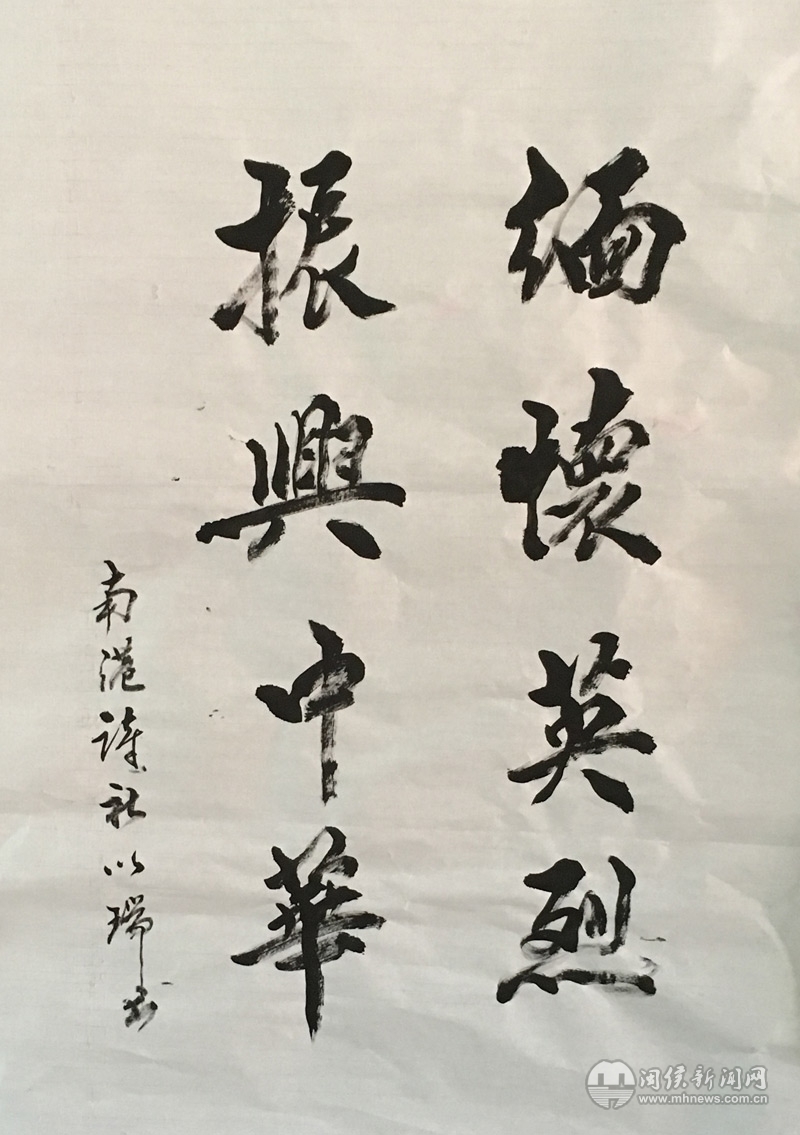 緬懷英烈
振興中華
南港詩社以瑞书
闽侯新闻网
www.mhnews.com.cn